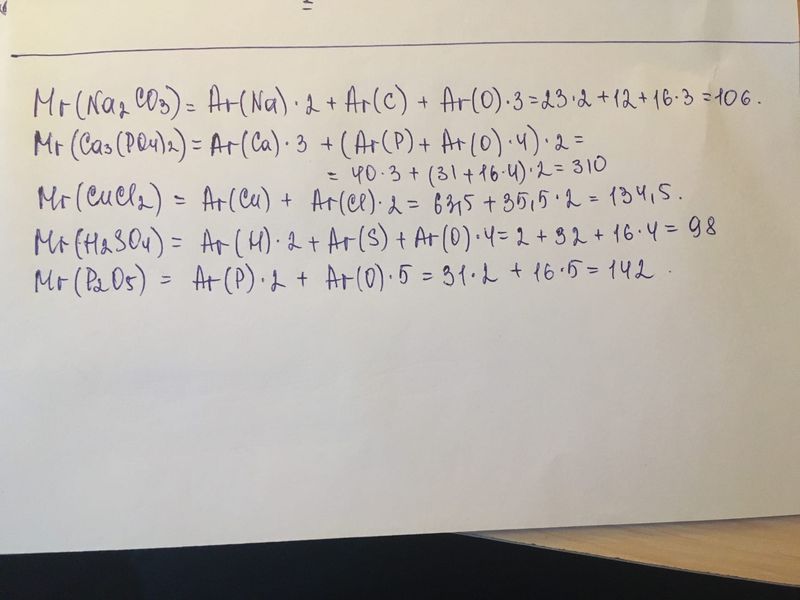 =
Mr(Na₂CO₃) = Ar(Na)·2 + Ar(C) + Ar(O)·3 = 23·2 + 12 + 16·3 = 106.
Mr(Ca₃(PO₄)₂) = Ar(Ca)·3 + (Ar(P) + Ar(O)·4)·2 =
= 40·3 + (31 + 16·4)·2 = 310
Mr(CuCl₂) = Ar(Cu) + Ar(Cl)·2 = 63,5 + 35,5·2 = 134,5.
Mr(H₂SO₄) = Ar(H)·2 + Ar(S) + Ar(O)·4 = 2 + 32 + 16·4 = 98
Mr(P₂O₅) = Ar(P)·2 + Ar(O)·5 = 31·2 + 16·5 = 142.